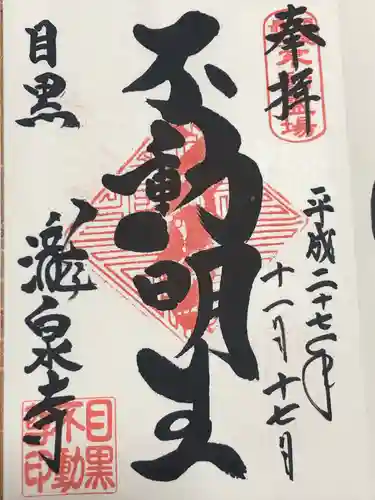 奉拝
平成二十七年
十一月十七日
不動明王
目黒
瀧泉寺
目黒
不動